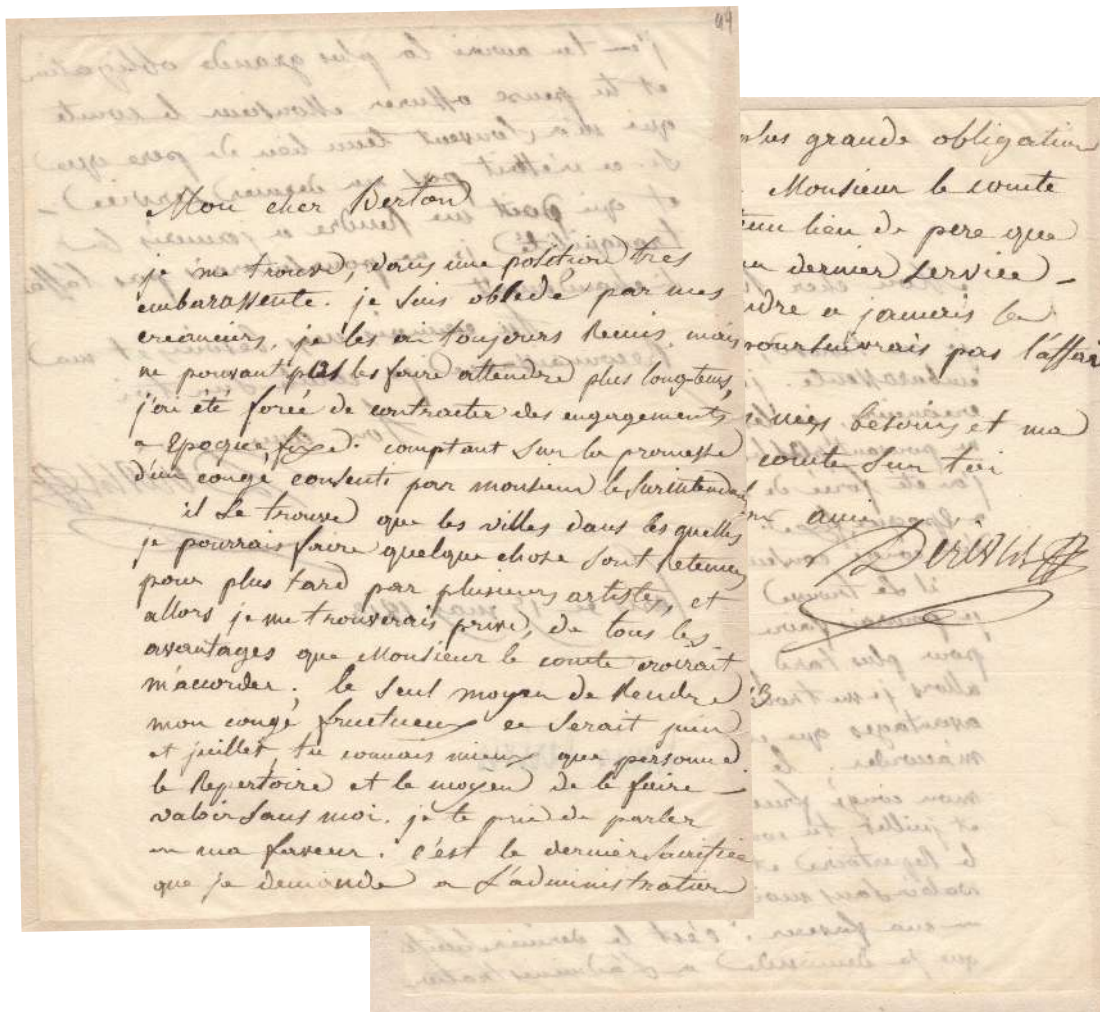 44
Mon cher Berton
je me trouve, dans une position tres
embarassente. je suis obledé par mes
creanciers, je les ai toujours Remis, mais
ne pouvant plus les faire attendre plus longtems,
j'ai été forcé de contracter des engagements
a Epoque, fixe. comptant sur la promesse
d'un congé consenti par monsieur le Surintendant
il se trouve que les villes dans les quelles
je pourrais faire quelque chose sont Retenues
pour plus tard par plusieurs artistes, et
allors je me trouverais privé, de tous les
avantages que Monsieur le comte croirait
m'accorder. le seul moyen de Rendre
mon congé fructueux ce serait juin
et juillet, tu connais mieux que personne
le Repertoire et le moyen de le faire
valoir sans moi. je te prie de parler
en ma faveur. c'est le dernier sacrifice
que je demande a L'administration
plus grande obligation
Monsieur le comte
tenu lieu de pere que
un dernier service
ndre a jamais la
poursuivrais pas l'affair
mes besoins et ma
comte sur toi
ami
Derivis